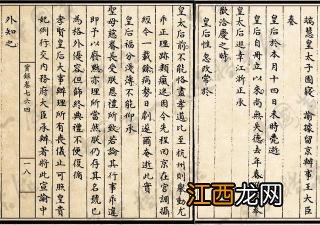 端慧皇太子園寢○諭據留京辦事王大臣
奏
皇后於本月十四日未時薨逝
皇后自冊立以來尚無失德去年春朕恭奉
皇太后巡幸江浙正承
歡洽慶之時
皇后性忽改常於
皇太后前不能恪盡孝道比至杭州則舉動尤
乖正理跡類瘋迷因令先程回京在宮調攝
經今一載餘病勢日劇遂爾奄逝此實
皇后福分淺薄不能仰承
聖母慈眷長受朕恩禮所致若論其行事乖違
即予以廢黜亦理所當然朕仍存其名號已
為格外優容但飾終典禮不便復循
孝賢皇后大事辦理所有喪儀止可照皇貴
妃例行交內務府大臣承辦著將此宣諭中
外知之
實錄卷七六四
一八
西龙网